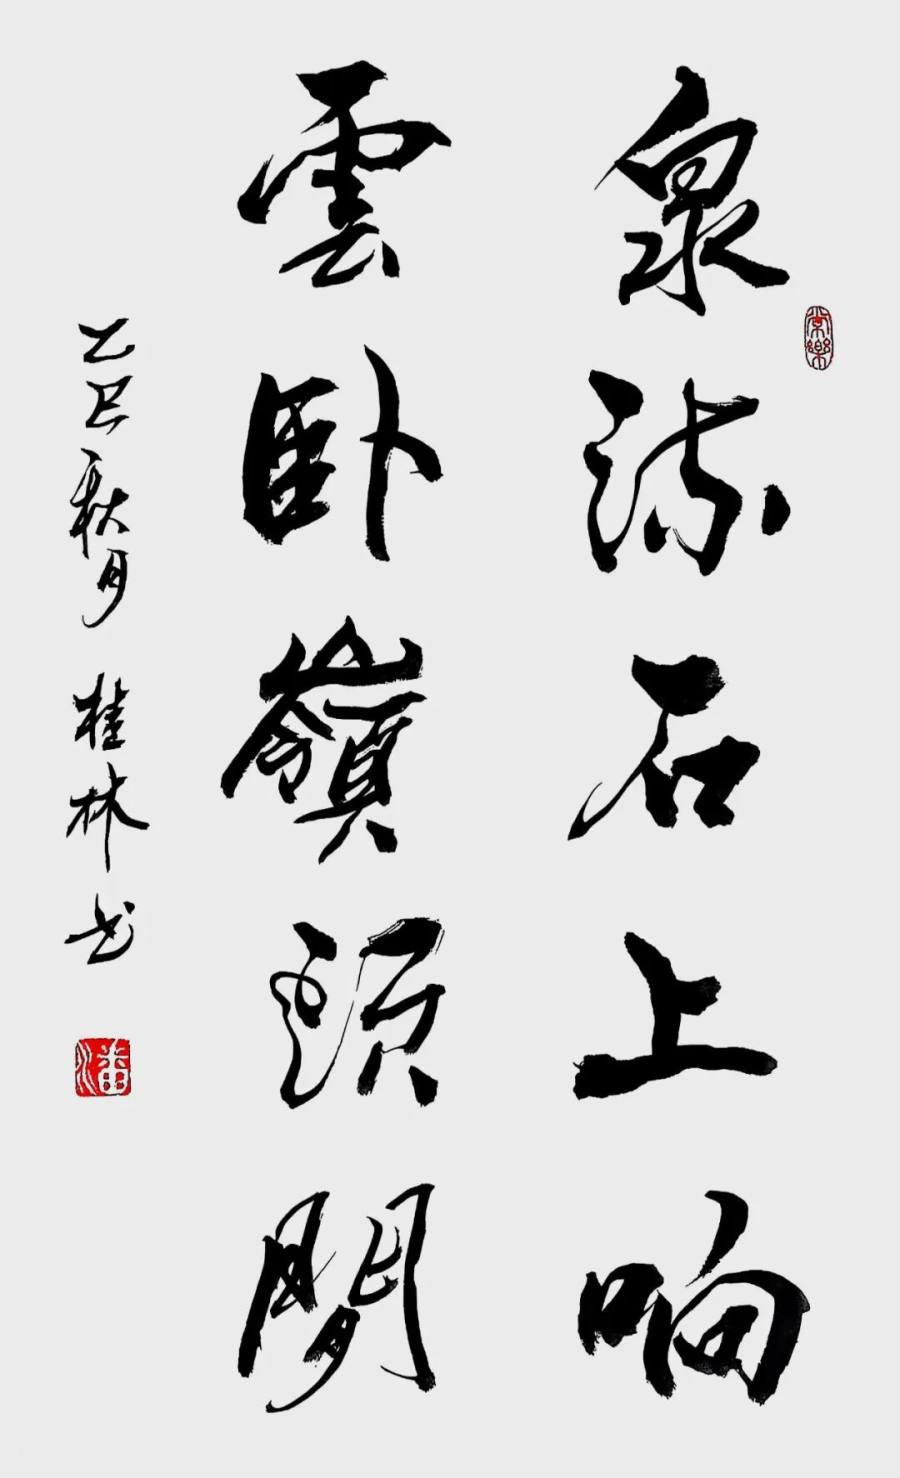 常樂
泉流石上响
雲卧嶺頭閒
乙巳秋月 桂林书
潘